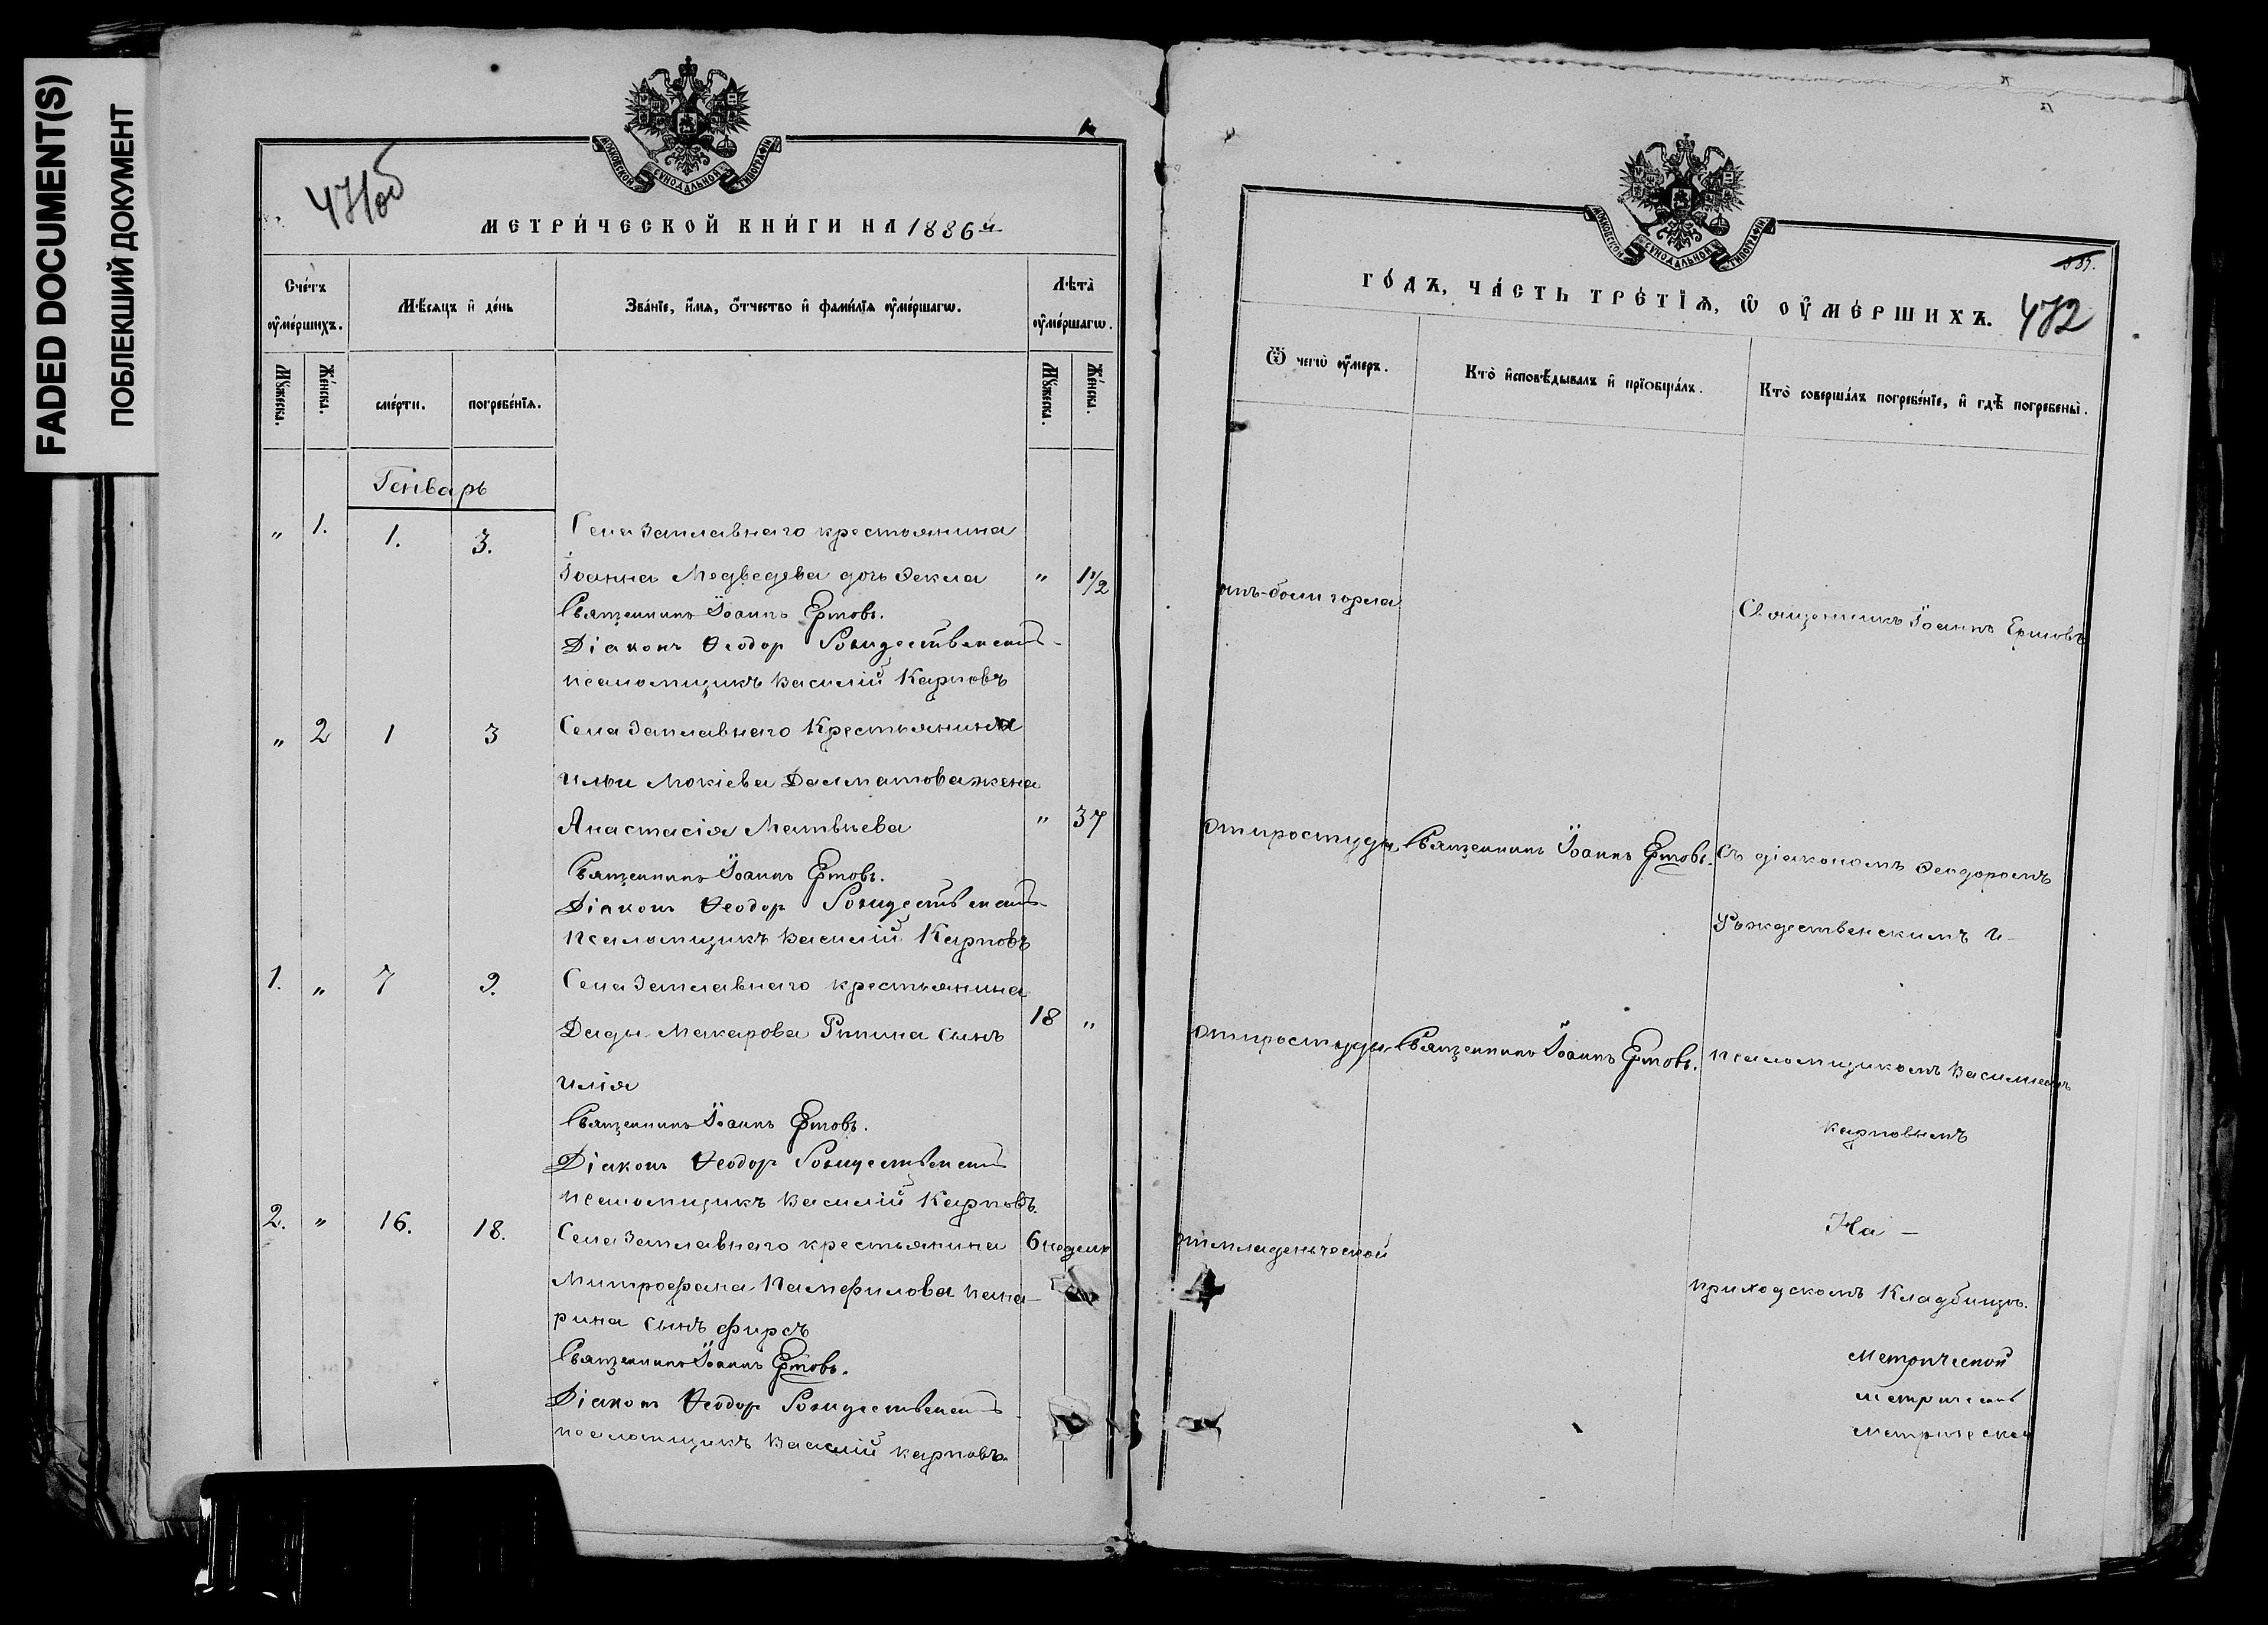 FADED DOCUMENT(S)
ПОБЛЕКШИЙ ДОКУМЕНТ
471об
МОСКОВСКОЙ СѴНОДАЛЬНОЙ ТИПОГРАФІИ
МЕТРИ́ЧЕСКОЙ КНИ́ГИ НА 1886й
Сче́тъ ᲂу҆ме́ршихъ.
Мѣ́сяцъ и҆ де́нь
Зва́нїе, и҆́мѧ, ѻ҆́тчество и҆ фами́лїѧ ᲂу҆ме́ршагѡ.
Лѣта̀ ᲂу҆ме́ршагѡ.
Мꙋ́жеска.
Же́нска.
сме́рти.
погребе́нїѧ.
Мꙋ́жеска.
Же́нска.
Генварь
" 1. 1. 3. Села Заплавнаго крестьянина
Іоанна Медведева дочь Ѳекла " 1 1/2
Священникъ Іоаннъ Ермовъ.
Діаконъ Ѳеодор Рождественскій
псаломщикъ Василій Карповъ
" 2 1 3 Села Заплавнаго Крестьянина
Ильи Мокіева Далматова жена
Анастасія Матвѣева " 37
Священникъ Іоаннъ Ермовъ.
Діаконъ Ѳеодор Рождественскій
Псаломщикъ Василій Карповъ
1. " 7 9. Села Заплавнаго крестьянина
Макарова сынъ 18 "
Илія
Священникъ Іоаннъ Ермовъ.
Діаконъ Ѳеодор Рождественскій
псаломщикъ Василій Карповъ.
2. " 16. 18. Села Заплавнаго крестьянина 6 недель
Митрофана Памфилова Кана-
рина сынъ Фирсъ
Священникъ Іоаннъ Ермовъ.
Діаконъ Ѳеодор Рождественскій
псаломщикъ Василій Карповъ
МОСКОВСКОЙ СѴНОДАЛЬНОЙ ТИПОГРАФІИ
ГО́ДЪ, ЧА́СТЬ ТРЕ́ТЇѦ, Ѡ҆ ОУ҆МЕ́РШИХЪ.
472
Ѿ чегѡ̀ ᲂу҆́меръ.
Кто̀ и҆сповѣ́дывалъ и҆ прїѡбща́лъ.
Кто̀ соверша́лъ погребе́нїе, и҆ гдѣ̀ погребены̀.
отъ боли горла
Священникъ Іоаннъ Ермовъ
от простуды Священникъ Іоаннъ Ермовъ. Съ діакономъ Ѳеодоромъ
Рождественскимъ и
от простуды Священникъ Іоаннъ Ермовъ. псаломщикомъ Василиемъ
карповымъ
На —
от младенческой
приходскомъ Кладбищѣ.
Метрической
метрическ
метрическ